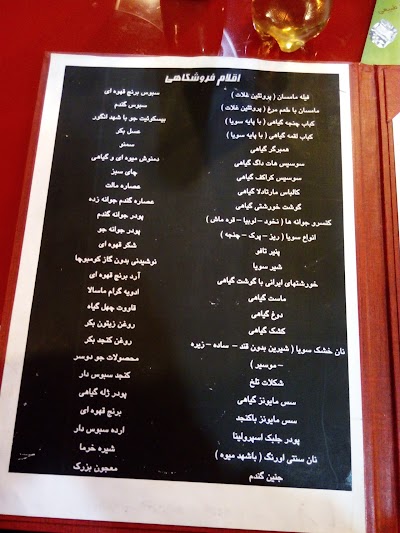 اقلام فروشگاهی
فیله ماهسان ( پروتئین غلات )
ماهسان با طعم مرغ ( پروتئین غلات )
کباب چنجه گیاهی ( با پایه سویا )
کباب لقمه گیاهی ( با پایه سویا )
همبرگر گیاهی
سوسیس هات داگ گیاهی
سوسیس کراکف گیاهی
کالباس مارتادلا گیاهی
گوشت خورشتی گیاهی
کنسرو جوانه ها ( نخود – لوبیا – قره ماش )
انواع سویا ( ریز – پرک – چنجه )
پنیر تافو
شیر سویا
خورشتهای ایرانی با گوشت گیاهی
ماست گیاهی
دوغ گیاهی
کشک گیاهی
نان خشک سویا ( شیرین بدون قند – ساده – زیره
– موسیر )
شکلات تلخ
سس مایونز گیاهی
سس مایونز باکنجد
پودر جلبک اسپرولینا
نان سنتی اورنگ ( باشهد میوه )
جنین گندم
سبوس برنج قهوه ای
سبوس گندم
بیسکوئیت جو با شهد انگور
عسل بکر
سمنو
دمنوش میوه ای و گیاهی
چای سبز
عصاره مالت
عصاره گندم جوانه زده
پودر جوانه گندم
پودر جوانه جو
شکر قهوه ای
نوشیدنی بدون گاز کومبوچا
آرد برنج قهوه ای
ادویه گرام ماسالا
قاووت چهل گیاه
روغن زیتون بکر
روغن کنجد بکر
محصولات جو دوسر
کنجد سبوس دار
پودر ژله گیاهی
برنج قهوه ای
ارده سبوس دار
شیره خرما
معجون بزرک